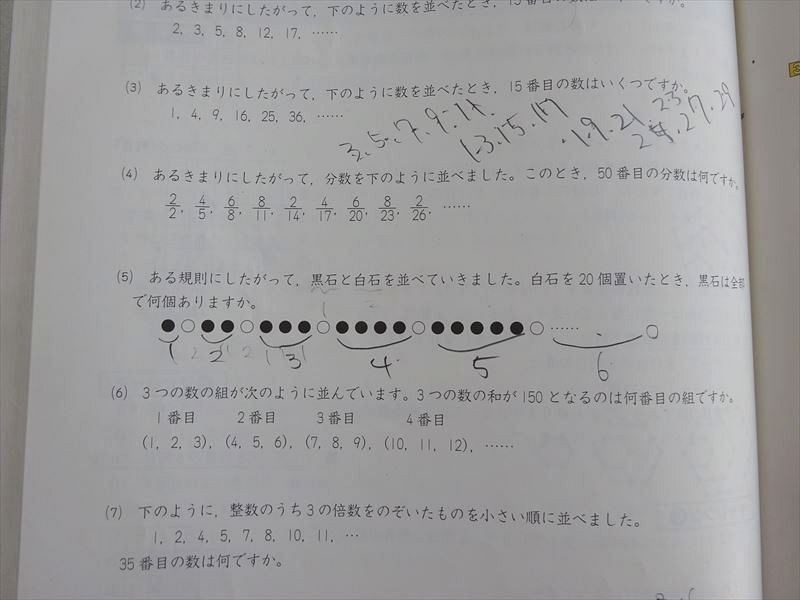 (2) あるきまりにしたがって，下のように数を並べたとき，15番目の数は
2, 3, 5, 8, 12, 17, ……
(3) あるきまりにしたがって，下のように数を並べたとき，15番目の数はいくつですか。
1, 4, 9, 16, 25, 36, ……
3. 5. 7. 9. 11.
(4) あるきまりにしたがって，分数を下のように並べました。このとき，50番目の分数は何ですか。
2/2, 4/5, 6/8, 8/11, 2/14, 4/17, 6/20, 8/23, 2/26, ……
(5) ある規則にしたがって，黒石と白石を並べていきました。白石を20個置いたとき，黒石は全部
で何個ありますか。
●○●●○●●●○●●●●○●●●●●○……
1 2 3 4 5 6
(6) 3つの数の組が次のように並んでいます。3つの数の和が150となるのは何番目の組ですか。
1番目 2番目 3番目 4番目
(1, 2, 3), (4, 5, 6), (7, 8, 9), (10, 11, 12), ……
(7) 下のように，整数のうち3の倍数をのぞいたものを小さい順に並べました。
1, 2, 4, 5, 7, 8, 10, 11, …
35番目の数は何ですか。